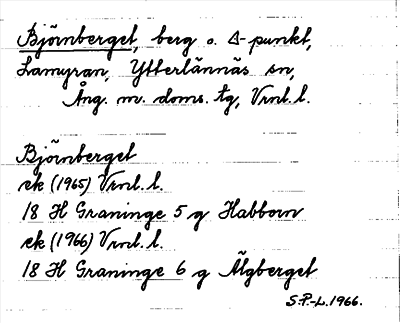 Björnberget, berg o. Δ-punkt,
Lamyran, Ytterlännäs sn,
Ång. m. doms. tg, Vrnl. l.
Björnberget
ek (1965) Vrnl. l.
18 H Graninge 5 g Habborn
ek (1966) Vrnl. l.
18 H Graninge 6 g Älgberget
S.P.-L. 1966.